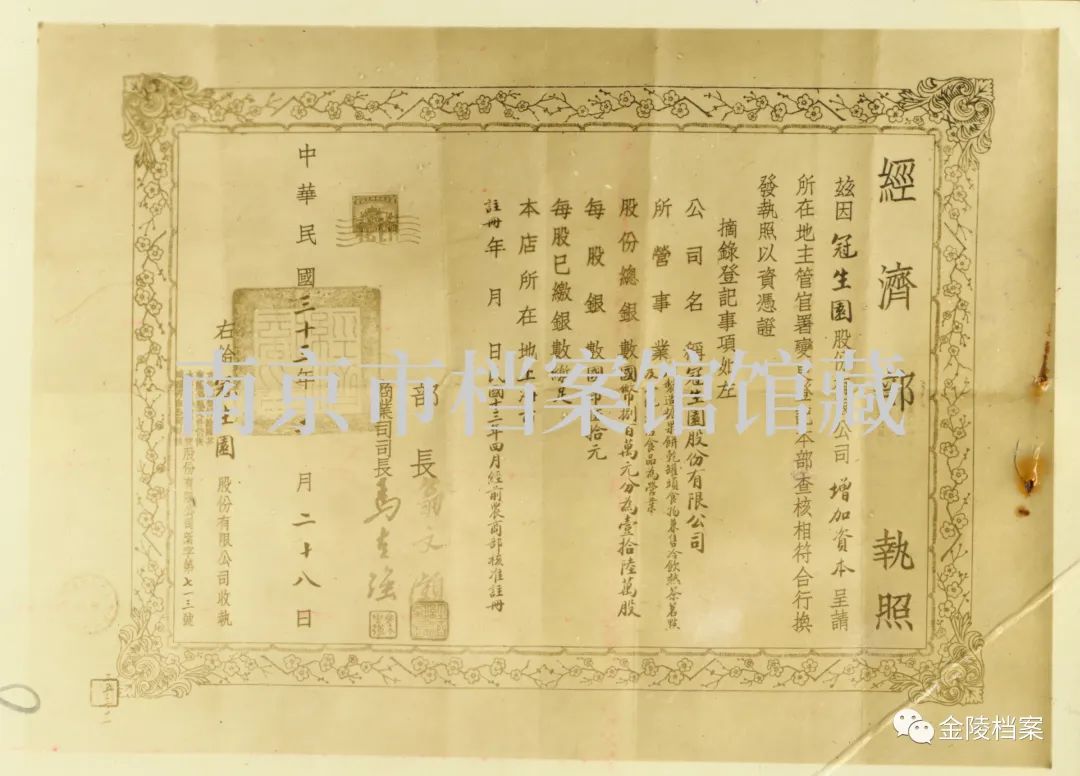 經濟部執照
茲因冠生園股份有限公司增加資本呈請
所在地主管官署變更登記本部查核相符合行換
發執照以資憑證
摘錄登記事項如左
公司名稱冠生園股份有限公司
所營事業製造糖菓餅乾罐頭食物兼售冷飲熱茶茗點
食品為營業
股份總銀數國幣捌百萬元分為壹拾陸萬股
每股銀數國幣伍拾元
每股已繳銀數繳足
本店所在地上海
註冊年月日民國十三年四月經前農商部核准註冊
部長翁文灝
商業司司長馬克強
中華民國三十二年 月二十八日
右給冠生園股份有限公司收執
股份有限公司新字第七一三號
南京市档案馆馆藏
金陵档案